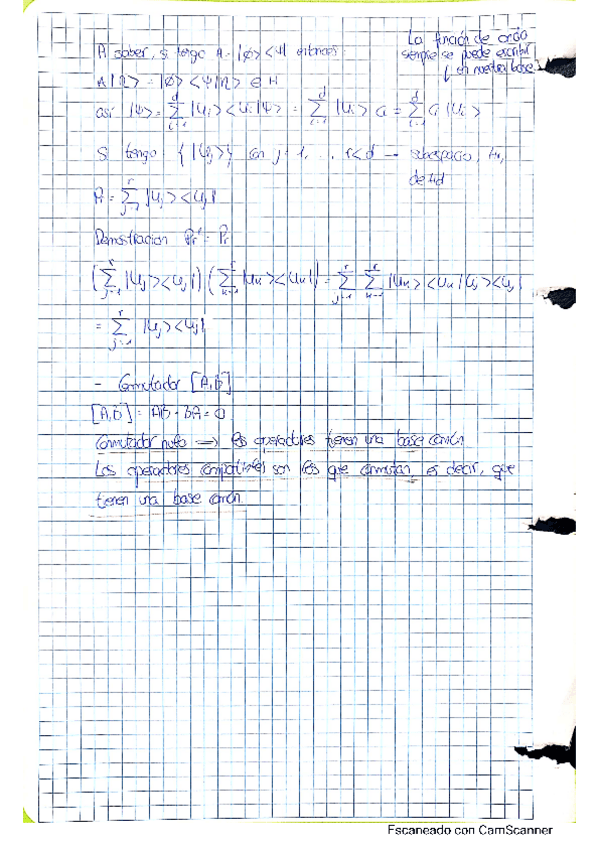 La función de onda
siempre se puede escribir
en nuestra base
A saber, si tengo A = |φ> <ψ| entonces
A|η> = |φ> <ψ|η> ∈ H
así |ψ> = Σ_{i=1}^{d} |u_i> <u_i|ψ> = Σ_{i=1}^{d} |u_i> c_i = Σ_{i=1}^{d} c_i |u_i>
Si tengo {|u_j>} con j=1, ... r<d → subespacio, Hr,
de Hd
Pr = Σ_{j=1}^{r} |u_j> <u_j|
Demostración Pr² = Pr
(Σ_{j=1}^{r} |u_j> <u_j|) (Σ_{k=1}^{r} |u_k> <u_k|) = Σ_{j=1}^{r} Σ_{k=1}^{r} |u_k> <u_k|u_j> <u_j|
= Σ_{j=1}^{r} |u_j> <u_j|
- Conmutador [A,B]
[A,B] = AB - BA = 0
Conmutador nulo → los operadores tienen una base común
Los operadores compatibles son los que conmutan, es decir, que
tienen una base común.
Escaneado con CamScanner